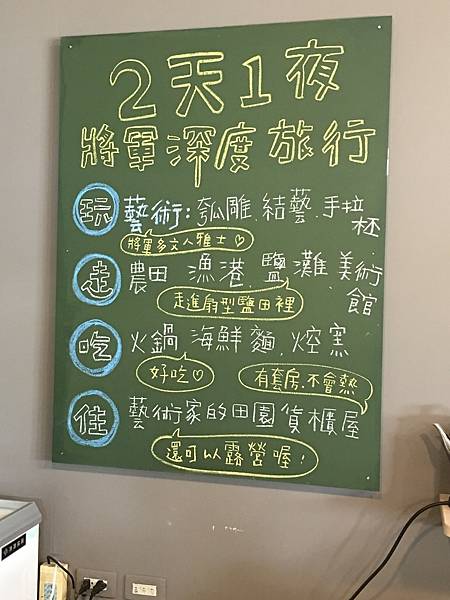 2天1夜
將軍深度旅行
玩 藝術:瓠雕.結藝.手拉
杯
將軍多文人雅士♡
走 農田 漁港.鹽灘.美術
館
走進扇型鹽田裡
吃 火鍋 海鮮麵.焢窯
好吃♡ 有套房.不會熱
住 藝術家的田園貨櫃屋
還可以露營喔!